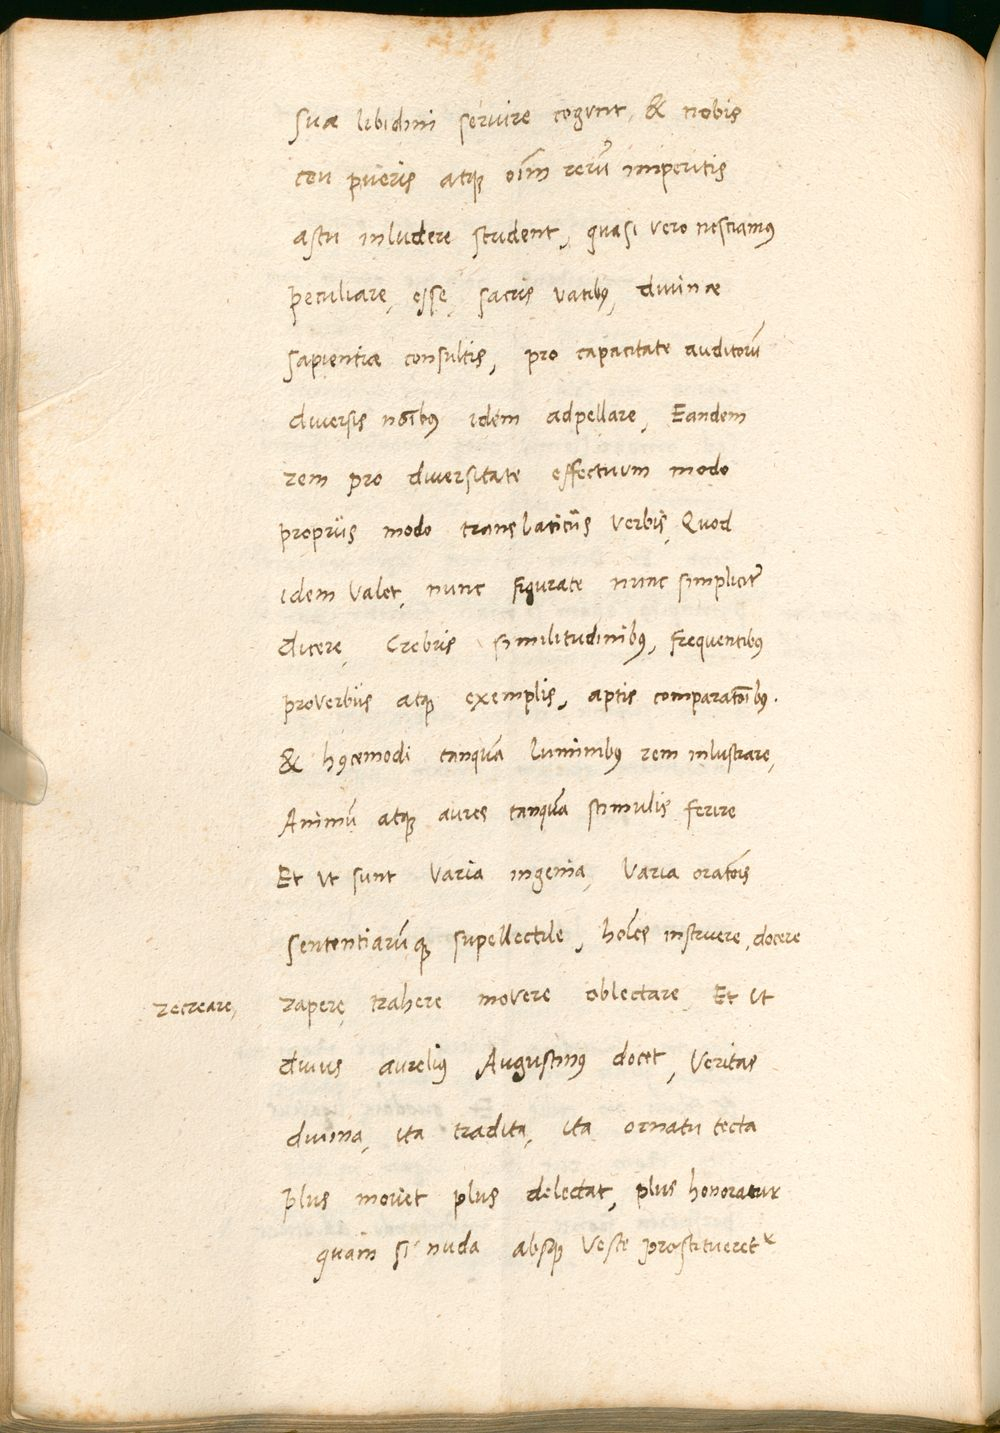 suæ libidini seruire cogunt, & nobis
ceu pueris atq̃ oĩm rerũ imperitis
astu inludere student, quasi vero nesciamꝰ
peculiare, esse, sacris vatibꝰ, diuinæ
sapientiæ consultis, pro capacitate auditorũ
diuersis noĩbꝰ idem adpellare, Eandem
rem pro diuersitate effectuum modo
propriis modo translaticiis verbis, Quod
idem valet, nunc figurate nunc simplicit̃
dicere, Crebris similitudinibꝰ, frequentibꝰ
proverbiis atq̃ exemplis, aptis comparatõibꝰ.
& hꝰcemodi tanquã luminibꝰ rem inlustrare,
Animũ atq̃ aures tanquã stimulis ferire
Et vt sunt varia ingenia, varia oratõis
sententiarũq̃ supellectile, hoĩes instruere, docere
recreare, rapere, trahere movere oblectare, Et vt
diuus aureliꝰ Augustinꝰ docet, veritas
diuina, ita tradita, ita ornatu tecta
plus movet plus delectat, plus honoratur
quam si nuda absq̃ veste prostitueretᷣ